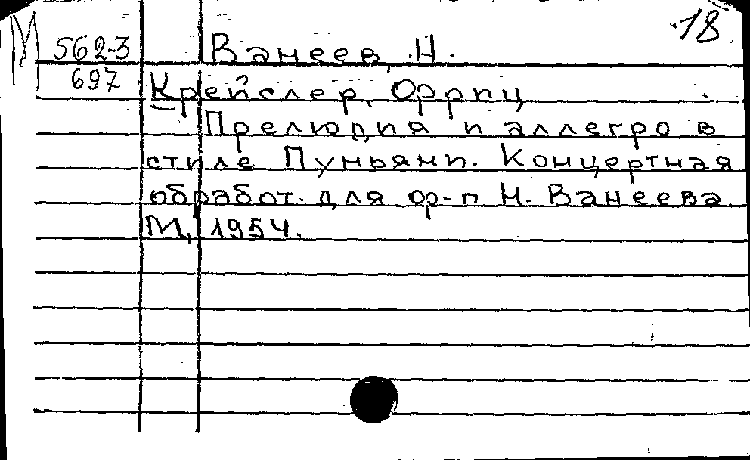 18
М 562-3 Ванеев, Н.
697 Крейслер, Фрриц
Прелюдия и аллегро в
стиле Пуньяни. Концертная
обработ. для ф-п Н. Ванеева
М, 1954.